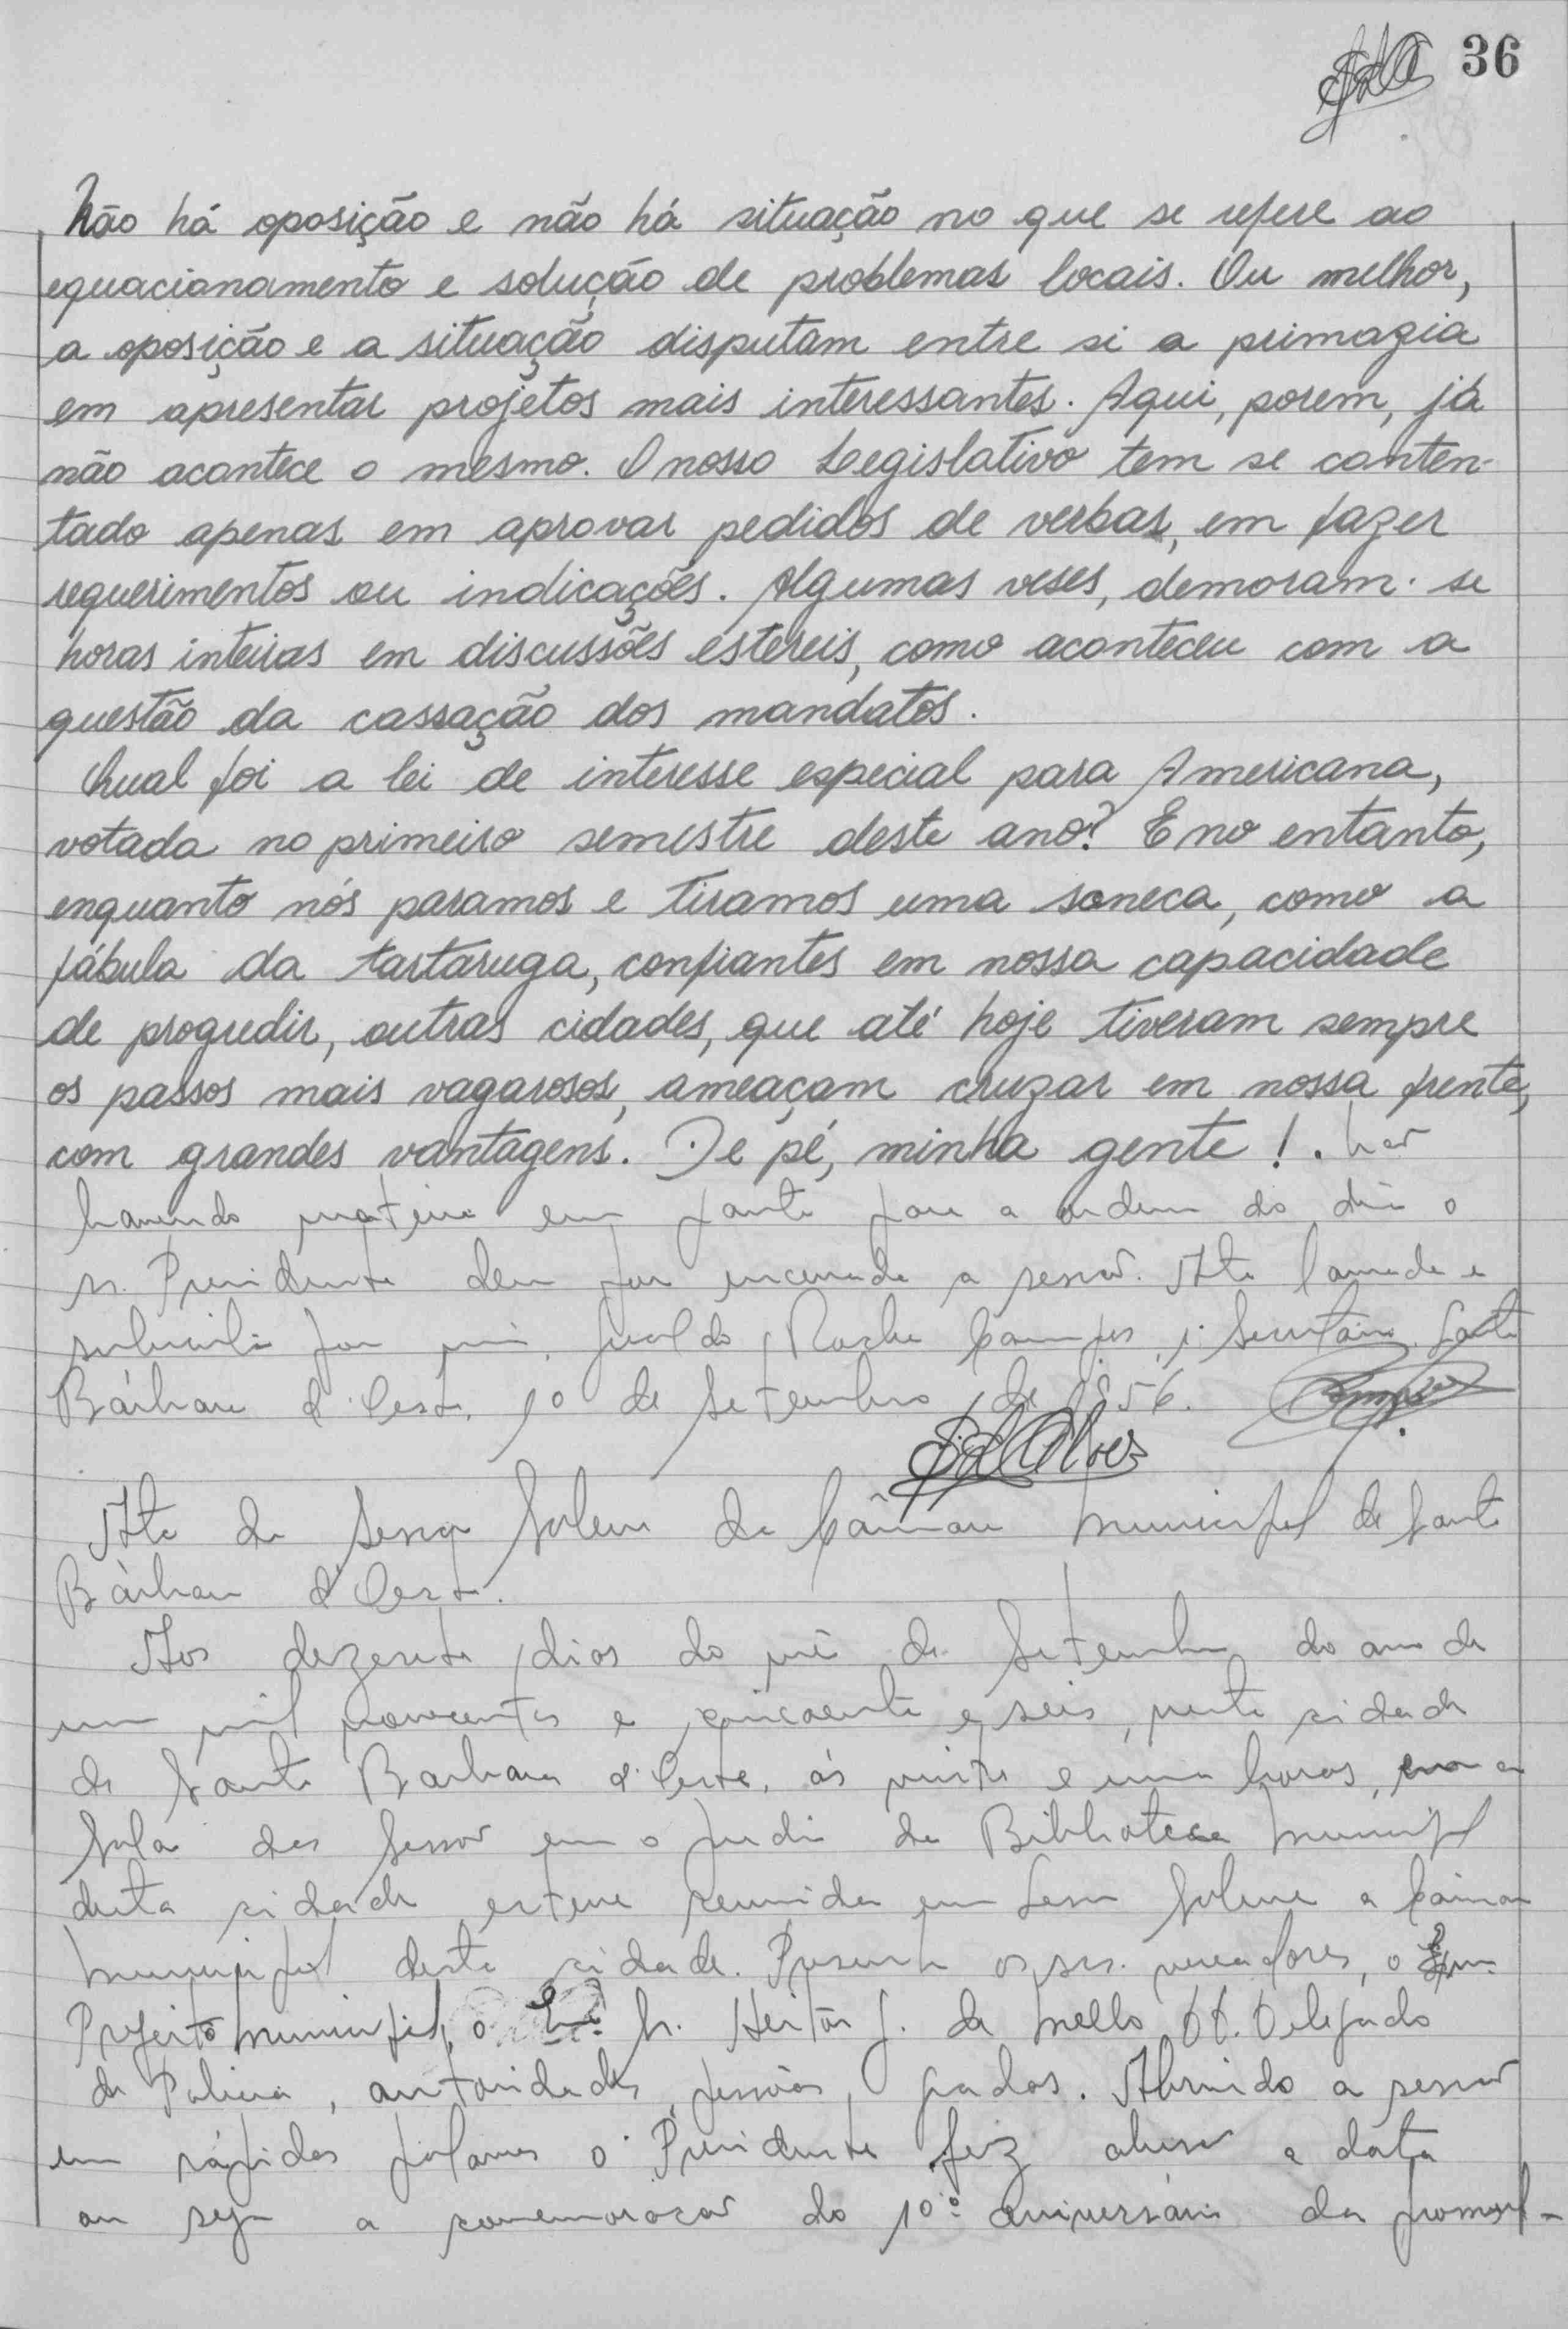 36
Não há oposição e não há situação no que se refere ao
equacionamento e solução de problemas locais. Ou melhor,
a oposição e a situação disputam entre si a primazia
em apresentar projetos mais interessantes. Aqui, porem, já
não acontece o mesmo. O nosso Legislativo tem se conten-
tado apenas em aprovar pedidos de verbas, em fazer
requerimentos ou indicações. Algumas veses, demoram-se
horas inteiras em discussões estereis, como aconteceu com a
questão da cassação dos mandatos.
Qual foi a lei de interesse especial para Americana,
votada no primeiro semestre deste ano? E no entanto,
enquanto nós paramos e tiramos uma soneca, como a
fábula da tartaruga, confiantes em nossa capacidade
de progredir, outras cidades, que até hoje tiveram sempre
os passos mais vagarosos, ameaçam cruzar em nossa frente,
com grandes vantagens. De pé, minha gente!. Não
havendo materia em pauta para a ordem do dia o
sr. Presidente deu por encerrada a sessão. Ata lavrada e
subscrita por mim, Geraldo Rocha Campos, 1º Secretário. Santa
Bárbara d'Oeste, 1º de Setembro de 1956. Campos
Alves
Ata da Sessão Solene da Câmara Municipal de Santa
Bárbara d'Oeste.
Aos dezesete dias do mês de Setembro do ano de
um mil novecentos e cincoenta e seis, nesta cidade
de Santa Barbara d'Oeste, ás vinte e uma horas, na
Sala das Sessões em o predio da Biblioteca Municipal
desta cidade esteve reunida em Sessão Solene a Câmara
Municipal desta cidade. Presente os srs. vereadores, o Exmo.
Prefeito Municipal, o Sr. Heitor J. de Mello DD. Delegado
de Policia, autoridades, pessôas gradas. Abrindo a sessão
em rápidas palavras o Presidente fez alusão a data
ou seja a comemoração do 10º aniversário da promul-